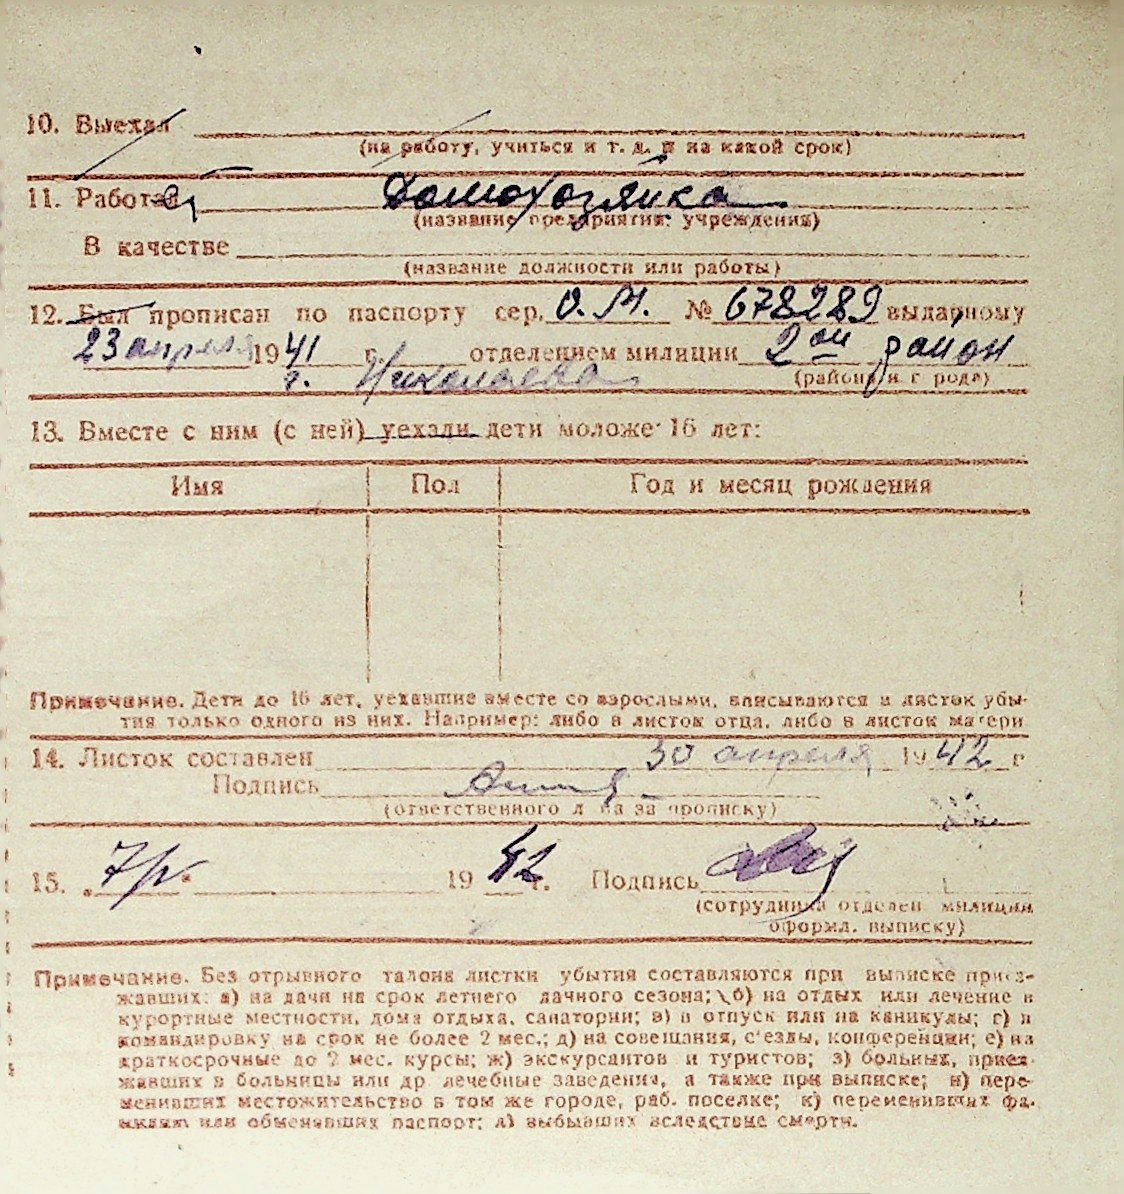 10. Выехал
(на работу, учиться и т. д. и на какой срок)
11. Работает Домохозяйка
(название предприятия, учреждения)
В качестве
(название должности или работы)
12. Был прописан по паспорту сер. О.М. № 678289 выданному
23 апреля 1941 г. отделением милиции 2ой район
г. Николаева (района и города)
13. Вместе с ним (с ней) уехали дети моложе 16 лет:
Имя Пол Год и месяц рождения
Примечание. Дети до 16 лет, уехавшие вместе со взрослыми, вписываются в листок убы-
тия только одного из них. Например: либо в листок отца, либо в листок матери
14. Листок составлен 30 апреля 1942 г
Подпись
(ответственного лица за прописку)
15. 1942 г. Подпись
(сотрудника отделен. милиции
оформл. выписку)
Примечание. Без отрывного талона листки убытия составляются при выписке приез-
жавших: а) на дачи на срок летнего дачного сезона; б) на отдых или лечение в
курортные местности, дома отдыха, санатории; в) в отпуск или на каникулы; г) в
командировку на срок не более 2 мес.; д) на совещания, с'езды, конференции; е) на
краткосрочные до 2 мес. курсы; ж) экскурсантов и туристов; з) больных, приез-
жавших в больницы или др. лечебные заведения, а также при выписке; и) пере-
менивших местожительство в том же городе, раб. поселке; к) переменивших фа-
милию или обменявших паспорт; л) выбывших вследствие смерти.